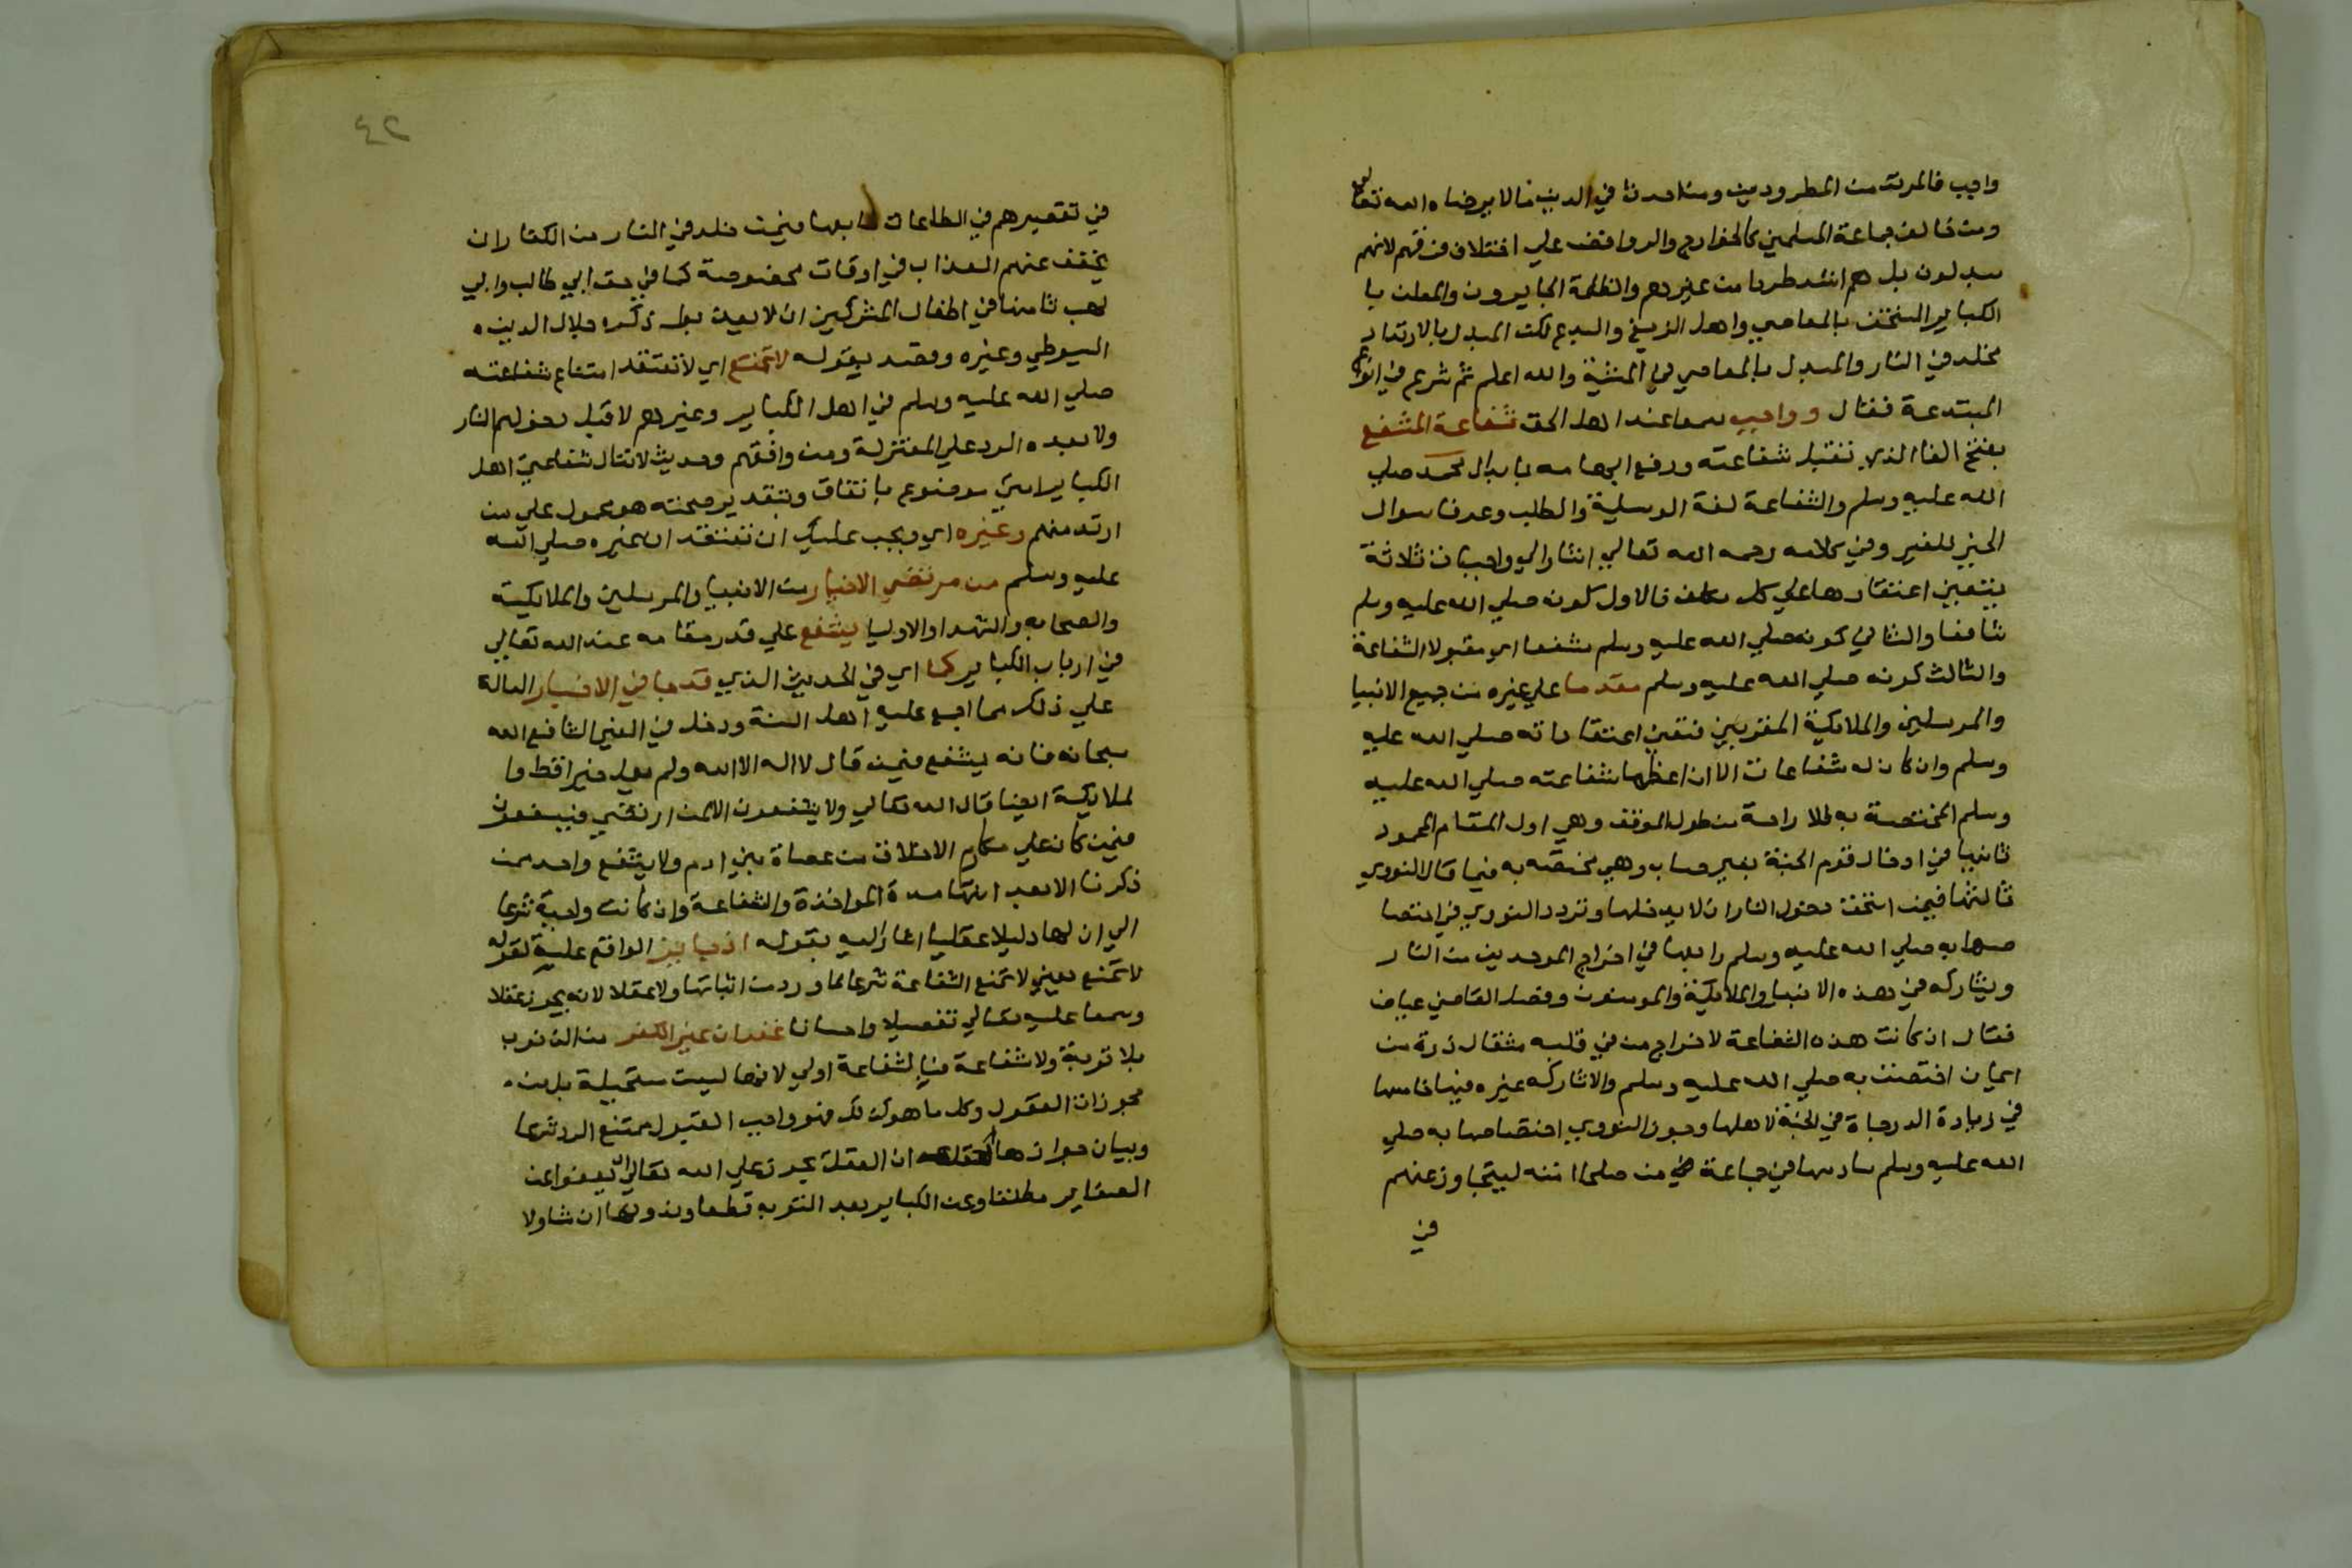 واجب فالمرتد من المطرودين ومن احدث في الدين مالا يرضاه الله تعالى
ومن خالف جماعة المسلمين كالخوارج والروافض علي اختلاف فرقهم لانهم
مبدلون بل هم اشد طردا من غيرهم والظلمة الجايرون والمعلن با
الكباير المستخف بالمعاصي واهل الزيغ والبدع لكن المبدل بالارتداد
مخلد في النار والمبدل بالمعاصي في المشية والله اعلم ثم شرع في انواع
المبتدعة فقال وواجب سمعا عند اهل الحق شفاعة المشفع
بفتح الفا الذي تقبل شفاعته ورفع ابهامه بابدال محمد صلي
الله عليه وسلم والشفاعة لغة الوسيلة والطلب وعرفا سوال
الخير للغير وفي كلامه رحمه الله تعالي اشار الي واجبات ثلاثة
يتعين اعتقادها علي كل مكلف فالاول كونه صلي الله عليه وسلم
شافعا والثاني كونه صلي الله عليه وسلم مشفعا اي مقبول الشفاعة
والثالث كونه صلي الله عليه وسلم مقدما علي غيره من جميع الانبيا
والمرسلين والملايكة المقربين فتعين اعتقاد انه صلي الله عليه
وسلم وان كان له شفاعات الا ان اعظمها شفاعته صلي الله عليه
وسلم المختصة به للاراحة من طول الموقف وهي اول المقام المحمود
ثانيها في ادخال قوم الجنة بغير حساب وهي مختصه به فيما قال النووي
ثالثها فيمن استحق دخول النار ان لا يدخلها وتردد النووي في اختصا
صها به صلي الله عليه وسلم رابعها في اخراج الموحدين من النار
ويشاركه في هذه الانبيا والملايكة والمومنون وفصل القاضي عياض
فقال ان كانت هذه الشفاعة لاخراج من في قلبه مثقال ذرة من
ايمان اختصت به صلي الله عليه وسلم والا شاركه غيره فيها خامسها
في زيادة الدرجاة في الجنة لاهلها وجوز النووي اختصاصها به صلي
الله عليه وسلم سادسها في جماعة من صلحا امته ليتجاوز عنهم
في
٤٢
في تقصيرهم في الطاعات سابعها فيمن خلد في النار من الكفار ان
يخفف عنهم العذاب في اوقات مخصوصة كما في حق ابي طالب وابي
لهب ثامنها في اطفال المشركين ان لا يعذبوا ذكره جلال الدين
السيوطي وغيره وقصد بقوله لا تمنع اي لا تعتقد امتناع شفاعته
صلي الله عليه وسلم في اهل الكباير وغيرهم لا قبل دخولهم النار
ولا بعده الرد علي المعتزلة ومن وافقهم وحديث لا تنال شفاعتي اهل
الكباير من امتي موضوع باتفاق وبتقدير صحته هو محمول علي من
ارتد منهم وغيره اي ويجب عليك ان تعتقد ان غيره صلي الله
عليه وسلم من مرتضي الاخيار من الانبيا والمرسلين والملايكة
والصحابه والشهدا والاوليا يشفع علي قدر مقامه عند الله تعالي
في ارباب الكباير كما اي في الحديث الذي قد جا في الاخبار الدالة
علي ذلك مما اجمع عليه اهل السنة ودخل في الغير الشافع الله
سبحانه فانه يشفع فيمن قال لا اله الا الله ولم يعمل خيرا قط وا
لملايكة ايضا قال الله تعالي ولا يشفعون الا لمن ارتضي فيشفعون
فيمن كان علي مكارم الاخلاق من عصاة بني ادم ولا يشفع واحد ممن
ذكرنا الا بعد انتها مدة المواخذة والشفاعة وان كانت واجبة شرعا
الي ان لها دليلا عقليا اشار اليه بقوله اذ جايز الواقع علية لقوله
لا تمنع يعني لا تمنع الشفاعة شرعا لما ورد من اثباتها ولا عقلا لانه يجوز عقلا
وسمعا عليه تعالي تفضيلا واحسانا غفران غير الكفر من الذنوب
بلا توبة ولا شفاعة فبالشفاعة اولي لانها ليست مستحيلة بل من
مجوزات العقول وكل ما هو كذلك فهو واجب القبول ممتنع الرد شرعا
وبيان جوازها ان العقل يجوز علي الله تعالي ان يعفوا عن
الصغاير مطلقا وعن الكباير بعد التوبه قطعا وبدونها ان شا ولا